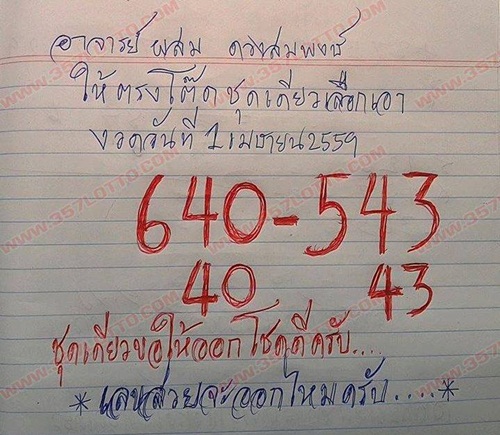 อาจารย์ ผสม ดวงสมพงษ์
ให้ตรงโต๊ดชุดเดียวเลือกเอา
งวดวันที่ 1 เมษายน 2559
640-543
40 43
ชุดเดียวขอให้ออกโชคดีครับ....
*เลขสวยจะออกไหมครับ.....*
WWW.357LOTTO.COM